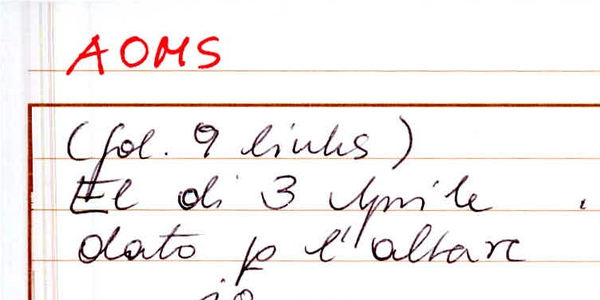 AOMS
(fol. 9 links)
El di 3 Aprile
dato p l'altare